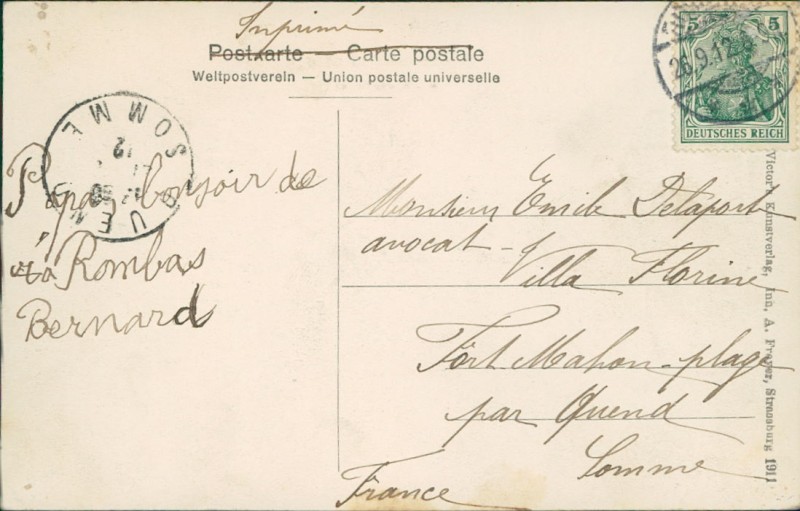 Inprimé
Postkarte — Carte postale
Weltpostverein — Union postale universelle
5 5
26.9.12
DEUTSCHES REICH
QUEND
SOMME
12
Papa bonsoir de
Rombas
Bernard
Monsieur Emile Delaport
avocat
Villa Florine
Fort Mahon-plage
par Quend
Somme
France
Victor's Kunstverlag, Inh. A. Freyer, Strassburg 1911